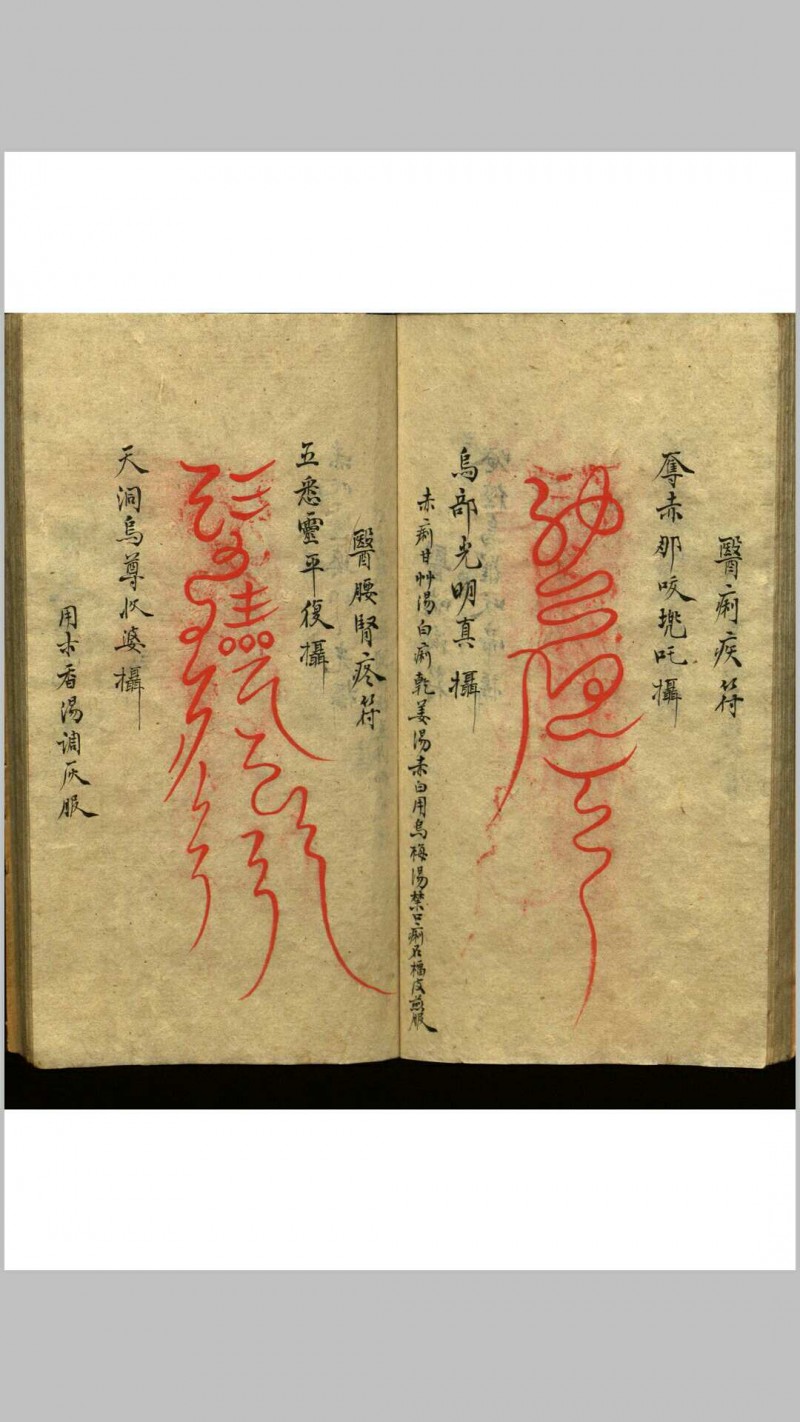 醫痢疾符
奪赤那咬㘛吒攝
烏部光明真攝
赤痢甘艸湯白痢乾姜湯赤白用烏梅湯禁口痢石榴皮煎服
醫腰腎疼符
五悉靈平復攝
天洞烏尊收婆攝
用木香湯調灰服